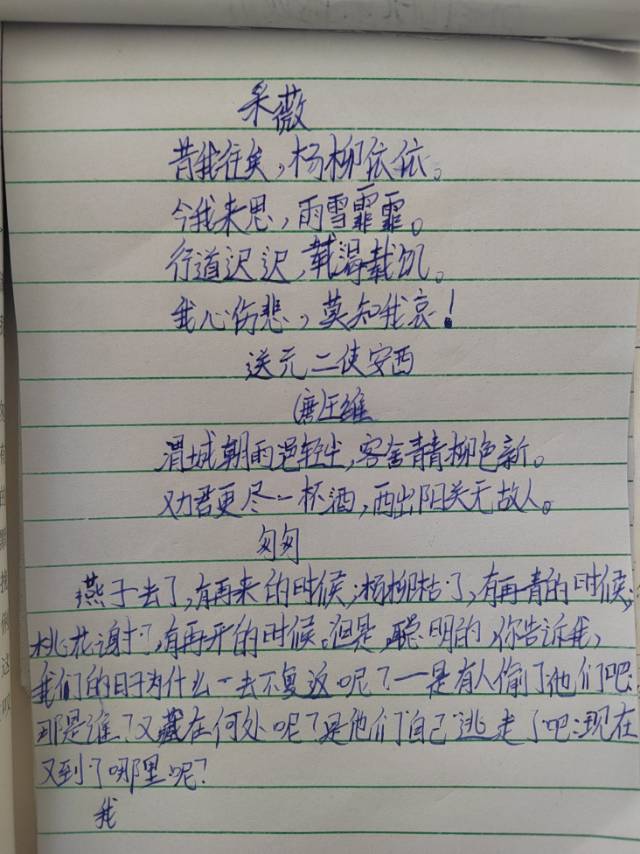 采薇
昔我往矣,杨柳依依。
今我来思,雨雪霏霏。
行道迟迟,载渴载饥。
我心伤悲,莫知我哀!
送元二使安西
(唐)王维
渭城朝雨浥轻尘,客舍青青柳色新。
劝君更尽一杯酒,西出阳关无故人。
匆匆
燕子去了,有再来的时候;杨柳枯了,有再青的时候;
桃花谢了,有再开的时候。但是,聪明的,你告诉我,
我们的日子为什么一去不复返呢?——是有人偷了他们吧:
那是谁?又藏在何处呢?是他们自己逃走了吧:现在
又到了哪里呢?
我